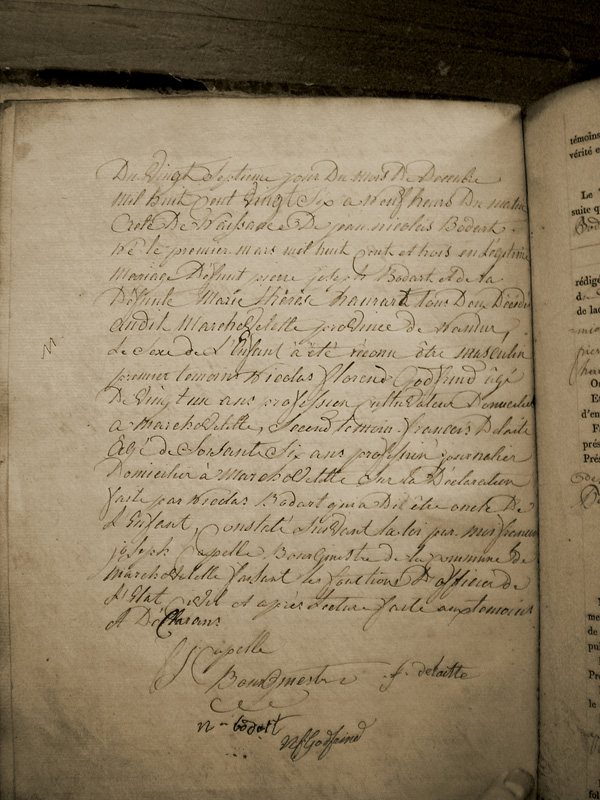 Du Vingt Septieme jour Du mois De Decembre
mil huit cent Vingt Six a neuf heures Du matin
acte De Naissance De jean nicolas Bodart
né le premier mars mil huit cent et trois en légitime
Mariage Défunt pierre joseph Bodart et de la
Défunte Marie thérèse haurart tous Deux Décédés
audit Marchovelette province de Namur,
Le Sexe de L'Enfant à été reconu être masculin
premier temoins Nicolas florend Godfrind âgé
De Vingt un ans profession cultivateur Domicilié
a marchovelette, Second temoin francois Delaite
Agé de Soisante Six ans profession journalier
Domicilier à Marchovelette Sur la Déclaration
faite par Nicolas Bodart qui a Dit être oncle De
L'Enfant, constaté Suivant la loi par moi francois
joseph Capelle Bourgmestre de la commune De
marchovelette faisant les fonctions D'officier de
L'Etat civil et après lecture faite aux temoins
et Déclarans
Capelle
Bourgmestre f. delaitte
n - bodart
nf Godfrind
témoins
vérité e
Le
suite q
rédigé
de lac
Et
d'en
prés
Pré